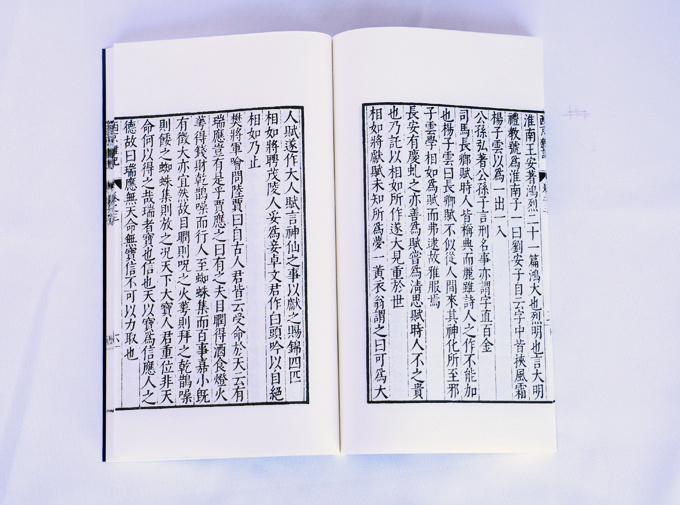 淮南王安著鴻烈二十一篇鴻大也烈明也言大明
禮教號為淮南子一曰劉安子自云字中皆挾風霜
楊子雲以為一出一入
公孫弘著公孫子言刑名事亦謂字直百金
司馬長卿賦時人皆稱典而麗雖詩人之作不能加
也楊子雲曰長卿賦不似從人間來其神化所至邪
子雲學相如為賦而弗逮故雅服焉
長安有慶虬之亦善為賦嘗為清思賦時人不之貴
也乃託以相如所作遂大見重於世
相如將獻賦未知所為夢一黃衣翁謂之曰可為大
人賦遂作大人賦言神仙之事以獻之賜錦四匹
相如將聘茂陵人女為妾卓文君作白頭吟以自絕
相如乃止
樊將軍噲問陸賈曰自古人君皆云受命於天云有
瑞應豈有是乎賈應之曰有之夫目瞤得酒食燈火
蕚得錢財乾鵲噪而行人至蜘蛛集而百事嘉小既
有徵大亦宜然故目瞤則呪之火蕚則拜之乾鵲噪
則餧之蜘蛛集則放之况天下大寶人君重位非天
命何以得之哉瑞者寶也信也天以寶為信應人之
德故曰瑞應無天命無寶信不可以力取也